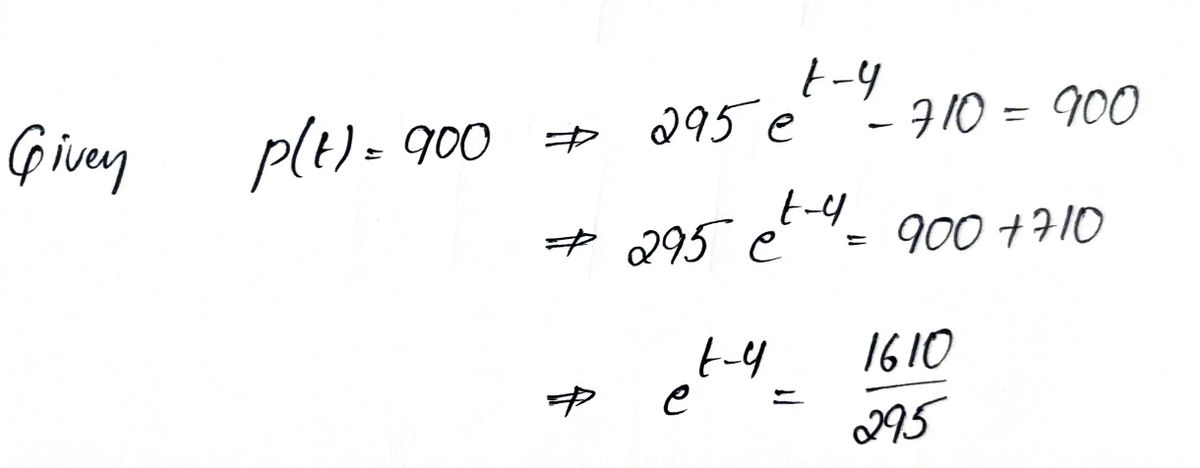 Given p(t) = 900 ⇒ 295 e^{t-4} - 710 = 900
⇒ 295 e^{t-4} = 900 + 710
⇒ e^{t-4} = \frac{1610}{295}